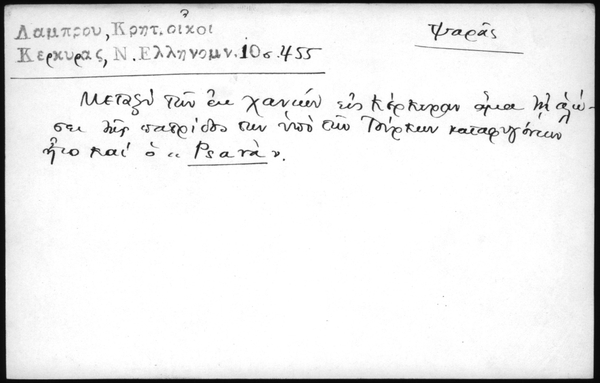 Λαμπρου, Κρητ. οἰκοι
Κερκυρας, Ν. Ελληνομν. 10σ. 455
Ψαρᾶς
Μεταξὺ τῶν ἐκ Χανίων εἰς Κέρκυραν ἅμα τῇ ἁλώ-
σει τῆς πατρίδος των ὑπὸ τῶν Τούρκων καταφυγόντων
ἦτο καὶ ὁ « Psarà ».